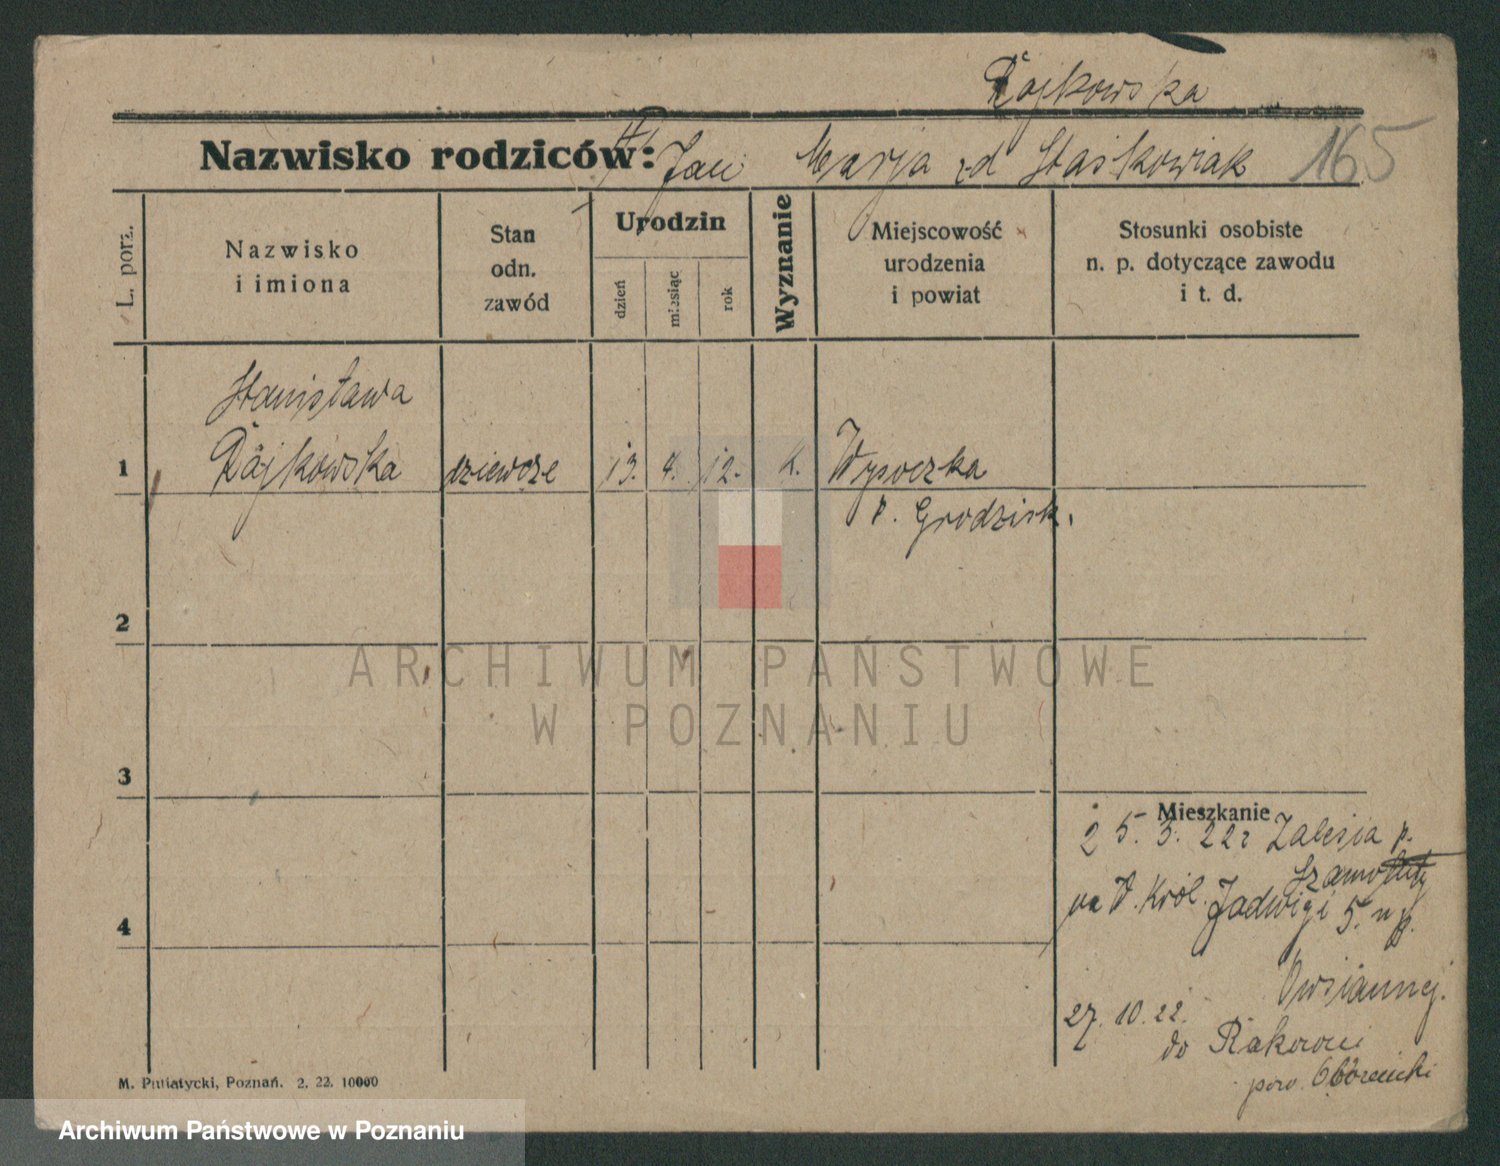 Rajkowska
Nazwisko rodziców: Jan Marja z d Staśkowiak 165
L. porz.
Nazwisko
i imiona
Stan
odn.
zawód
Urodzin
dzień
miesiąc
rok
Wyznanie
Miejscowość
urodzenia
i powiat
Stosunki osobiste
n. p. dotyczące zawodu
i t. d.
Stanisława
1 Rajkowska dziewcze 13. 4. 12. k. Wysoczka
p. Grodzisk.
2
3
4
Mieszkanie
25. 3. 22 r Zalesia p.
Szamotuły
na W. Król. Jadwigi 5. u p.
Owsiannej.
27. 10. 22.
do Rakowni
pow. Obornicki
M. Putiatycki, Poznań. 2. 22. 10000
ARCHIWUM PAŃSTWOWE
W POZNANIU
Archiwum Państwowe w Poznaniu